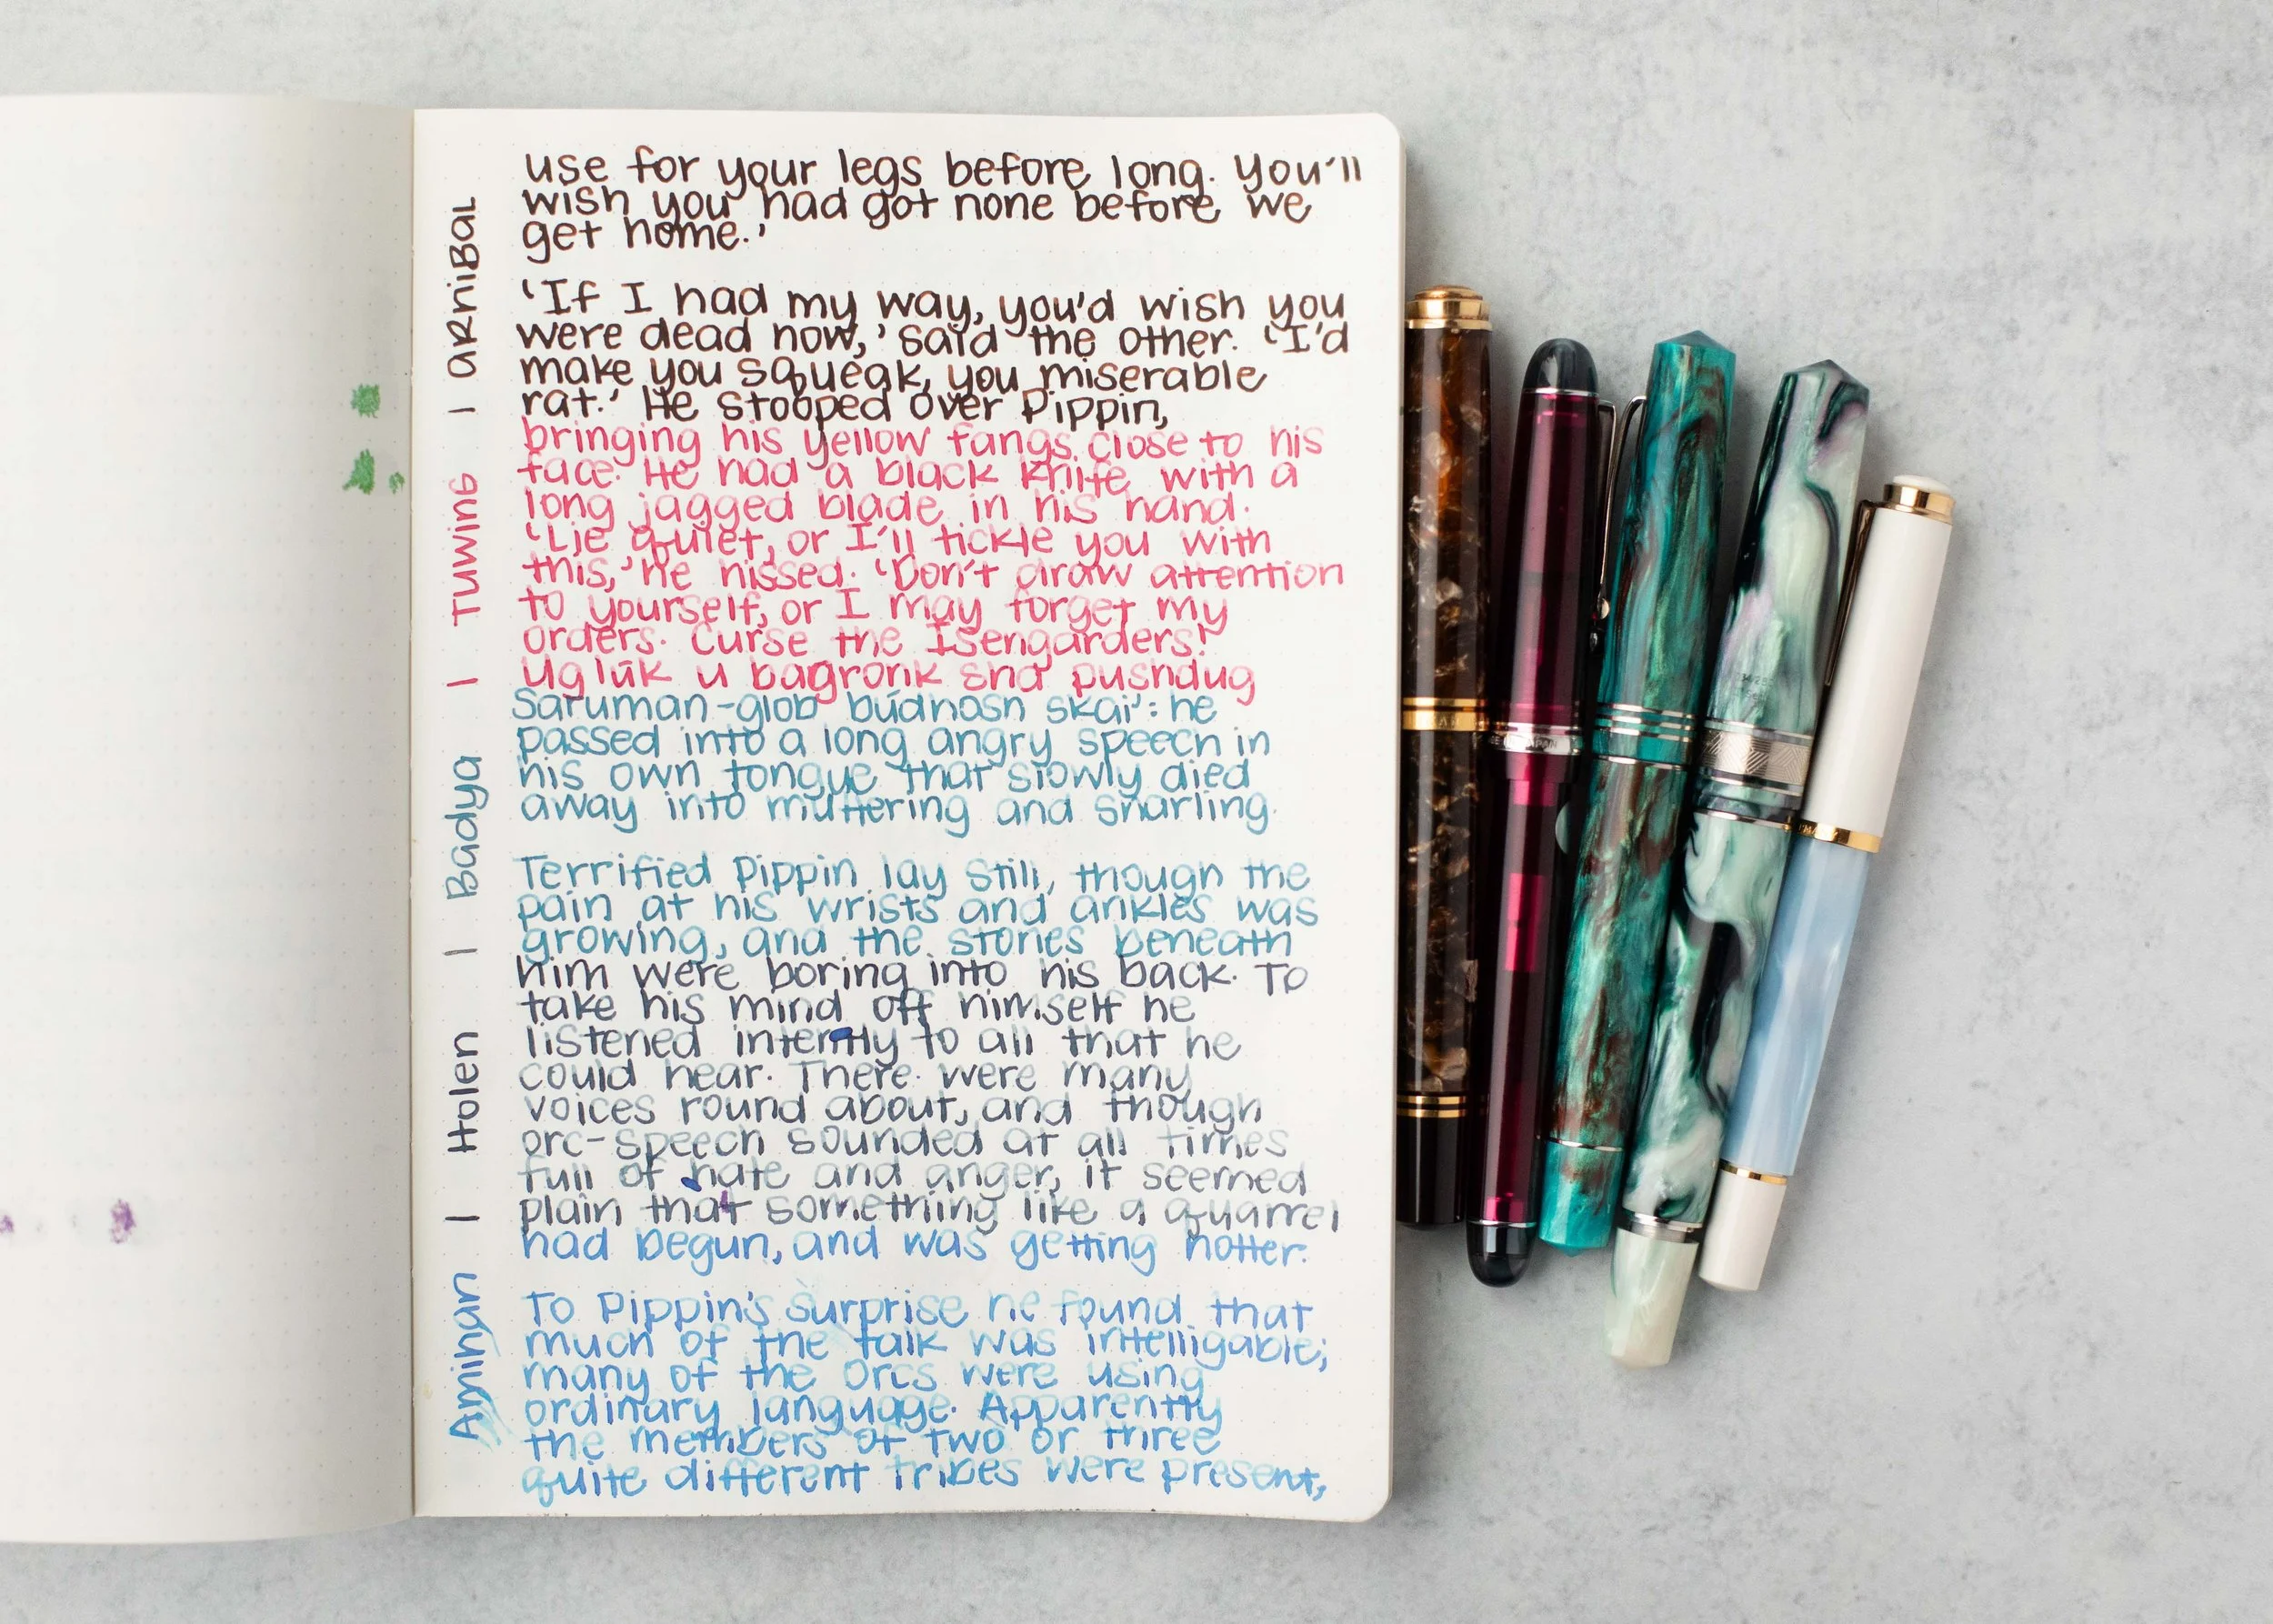 use for your legs before long. You'll
wish you had got none before we
get home.'
'If I had my way, you'd wish you
were dead now,' said the other. 'I'd
make you squeak, you miserable
rat.' He stooped over Pippin,
bringing his yellow fangs close to his
face. He had a black knife with a
long jagged blade in his hand.
'Lie quiet, or I'll tickle you with
this,' he hissed. 'Don't draw attention
to yourself, or I may forget my
orders. Curse the Isengarders!
Uglúk u bagronk sha pushdug
Saruman-glob búbhosh skai': he
passed into a long angry speech in
his own tongue that slowly died
away into muttering and snarling.
Terrified Pippin lay still, though the
pain at his wrists and ankles was
growing, and the stones beneath
him were boring into his back. To
take his mind off himself he
listened intently to all that he
could hear. There were many
voices round about, and though
orc-speech sounded at all times
full of hate and anger, it seemed
plain that something like a quarrel
had begun, and was getting hotter.
To Pippin's surprise he found that
much of the talk was intelligable;
many of the Orcs were using
ordinary language. Apparently
the members of two or three
quite different tribes were present,
Aminan | Holen | Badya | TUWING | ARNIBAL